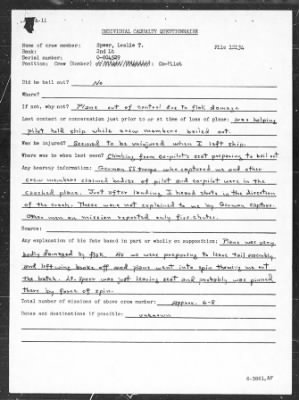 INDIVIDUAL CASUALTY QUESTIONNAIRE
Name of crew member: Speer, Leslie T.
File 12134
Rank: 2nd Lt
Serial number:
Position: Crew Co-Pilot
Did he bail out? No
Where?
If not, why not? Plane out of control due to flak damage
Last contact or conversation just prior to or at time of loss of plane: was helping
pilot hold ship while crew members bailed out.
Was he injured? Seemed to be uninjured when I left ship.
Where was he when last seen? Climbing from co-pilot's seat preparing to bail out
Any hearsay information: German SS troops who captured us and other
crew members claimed bodies of pilot and co-pilot were in the
crashed plane. Just after landing I heard shots in the direction
of the crash. These were not explained to me by German captors.
Other men on mission reported only five chutes.
Source:
Any explanation of his fate based in part or wholly on supposition: Plane was very
badly damaged by flak. As we were preparing to leave tail assembly
and left wing broke off and plane went into spin throwing me out
the hatch. Lt. Speer was just leaving seat and probably was pinned
there by force of spin.
Total number of missions of above crew member: approx. 6-8
Dates and destinations if possible: unknown
6-3861,AF